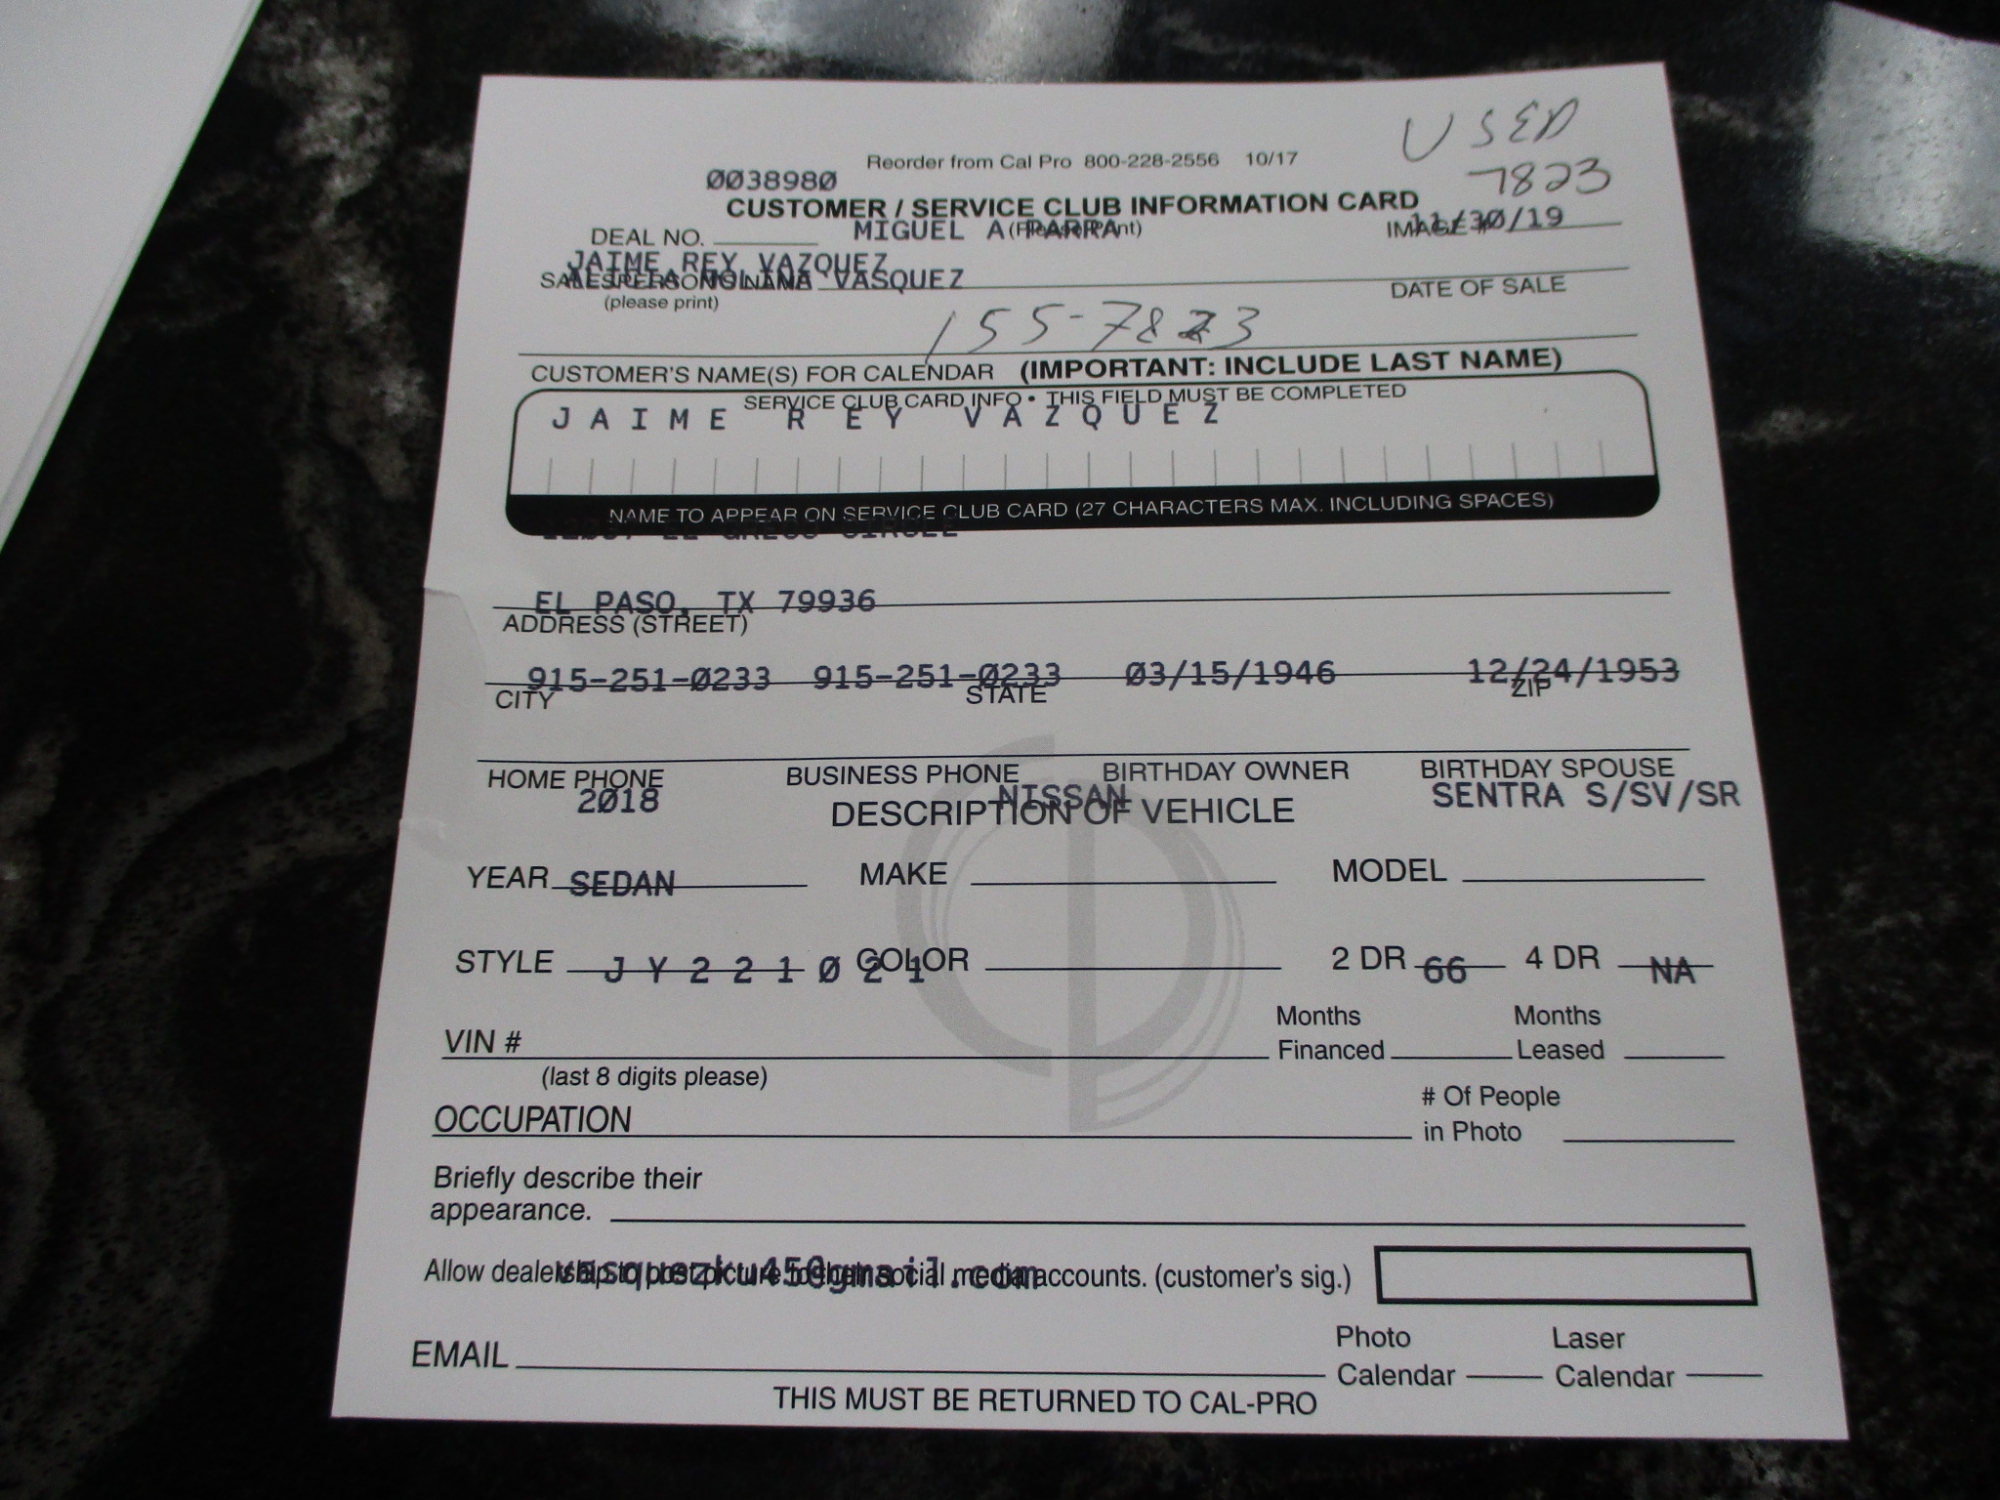 USED
Reorder from Cal Pro 800-228-2556 10/17
7823
0038980
CUSTOMER / SERVICE CLUB INFORMATION CARD
MIGUEL A PARRA 11/30/19
DEAL NO. (Please Print) IMAGE #
JAIME REY VAZQUEZ
MOLINA VASQUEZ
SALESPERSON'S NAME DATE OF SALE
(please print)
155-7823
CUSTOMER'S NAME(S) FOR CALENDAR (IMPORTANT: INCLUDE LAST NAME)
SERVICE CLUB CARD INFO • THIS FIELD MUST BE COMPLETED
JAIME REY VAZQUEZ
NAME TO APPEAR ON SERVICE CLUB CARD (27 CHARACTERS MAX. INCLUDING SPACES)
EL GRECO CIRCLE
EL PASO, TX 79936
ADDRESS (STREET)
915-251-0233 915-251-0233 03/15/1946 12/24/1953
CITY STATE ZIP
HOME PHONE BUSINESS PHONE BIRTHDAY OWNER BIRTHDAY SPOUSE
2018 NISSAN SENTRA S/SV/SR
DESCRIPTION OF VEHICLE
YEAR MAKE MODEL
SEDAN
STYLE COLOR 2 DR 4 DR
JY221021 66 NA
VIN # Months Financed Months Leased
(last 8 digits please)
OCCUPATION # Of People in Photo
Briefly describe their
appearance.
Allow dealership to post picture to their social media accounts. (customer's sig.)
EMAIL Photo Calendar Laser Calendar
THIS MUST BE RETURNED TO CAL-PRO